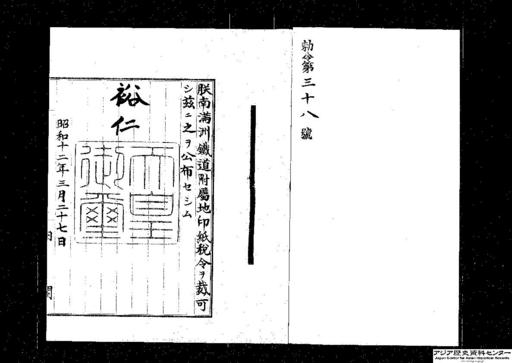 勅令第三十八號
朕南滿洲鐵道附屬地印紙税令ヲ裁可
シ茲ニ之ヲ公布セシム
裕仁
天皇御璽
昭和十二年三月二十七日
アジア歴史資料センター
Japan Center for Asian Historical Records